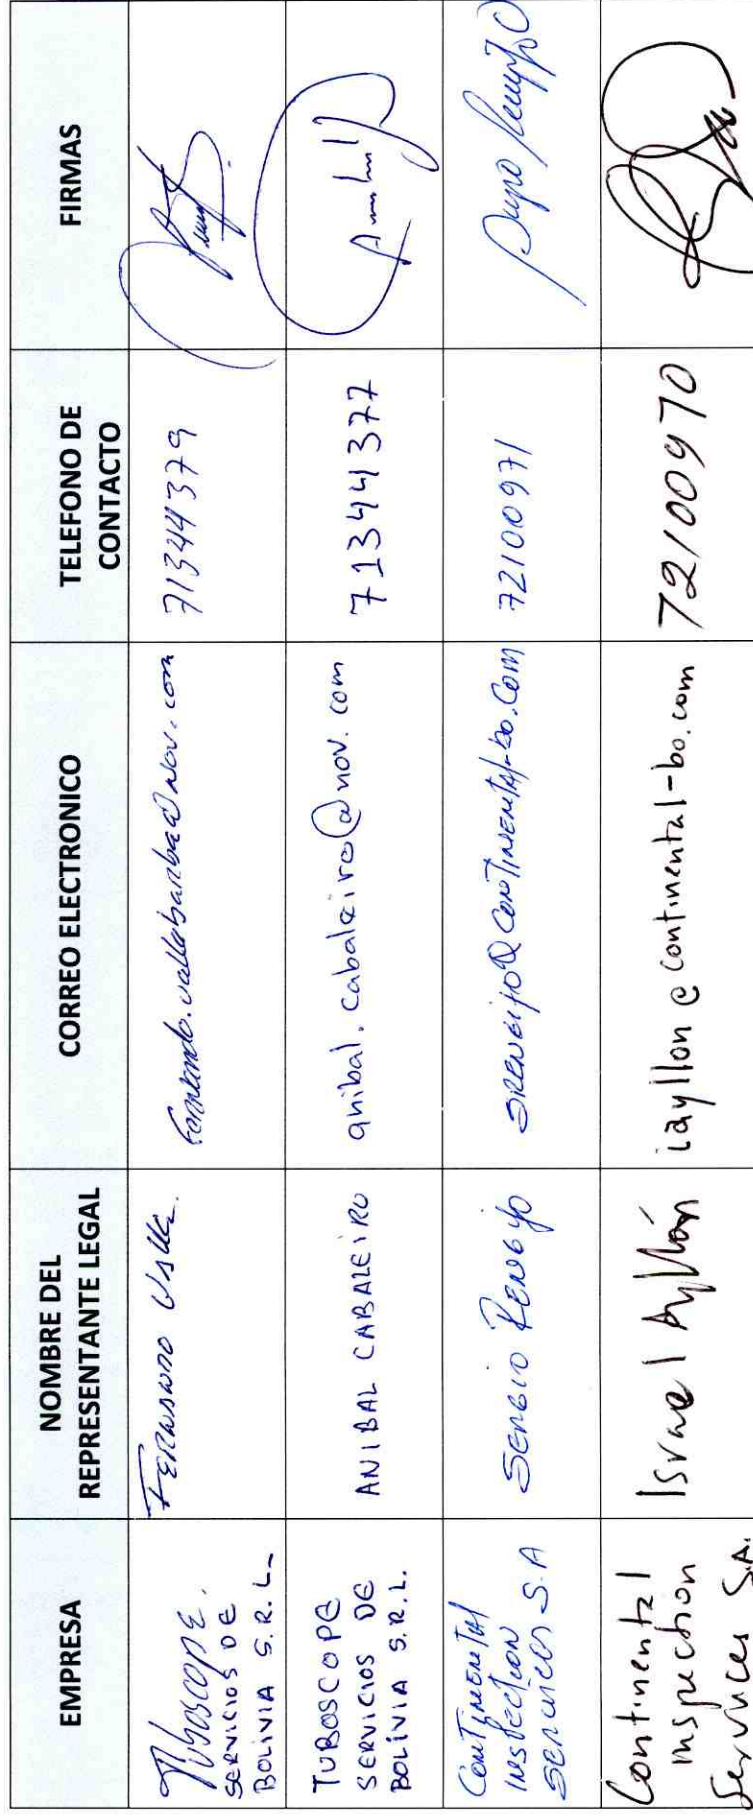 EMPRESA
NOMBRE DEL
REPRESENTANTE LEGAL
CORREO ELECTRONICO
TELEFONO DE
CONTACTO
FIRMAS
Tuboscope.
SERVICIOS DE
BOLIVIA S.R.L.
FERNANDO Valle
fernando.vallebarba@nov.com
71344379
TUBOSCOPE
SERVICIOS DE
BOLIVIA S.R.L.
ANIBAL CABALEIRO
anibal.cabaleiro@nov.com
71344377
Continental
Inspection
Services S.A
Sergio Rengijo
srengijo@continental-bo.com
72100971
Continental
inspection
Services S.A.
Israel Ayllón
iayllon@continental-bo.com
72100970